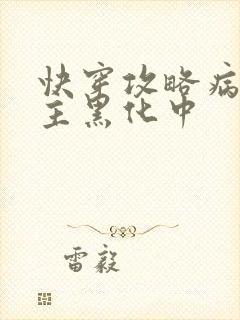 快穿攻略病
主黑化中
雷毅